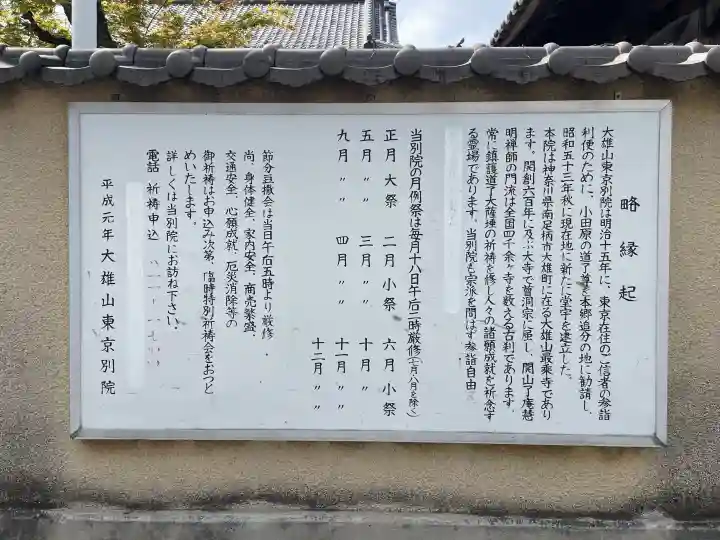 略縁起
大雄山東京別院は明治十五年に、東京在住のご信者の参詣
利便のために、小田原の道了尊を本郷追分の地に勧請し、
昭和五十三年秋に現在地に新たに堂宇を建立した。
本院は神奈川県南足柄市大雄町に在る大雄山最乗寺であり
ます。開創六百年に及ぶ大寺で曹洞宗に属し、開山了庵慧
明禅師の門流は全国四千余ヶ寺を数える古刹であります。
常に鎮護道了大薩埵の祈祷を修し人々の諸願成就を祈念す
る霊場であります。当別院も宗派を問はず参詣自由
当別院の月例祭は毎月十八日午后二時厳修(七月八月を除く)
正月大祭 二月小祭 六月小祭
五月〃〃 三月〃〃 十月〃
九月〃〃 四月〃〃 十一月〃〃
十二月〃〃
節分豆撒会は当日午后五時より厳修.
尚、身体健全、家内安全、商売繁盛、
交通安全、心願成就、厄災消除等の
御祈祷はお申込み次第、臨時特別祈祷会をおつと
めいたします。
詳しくは当別院にお訪ね下さい。
電話 祈祷申込
平成元年 大雄山東京別院